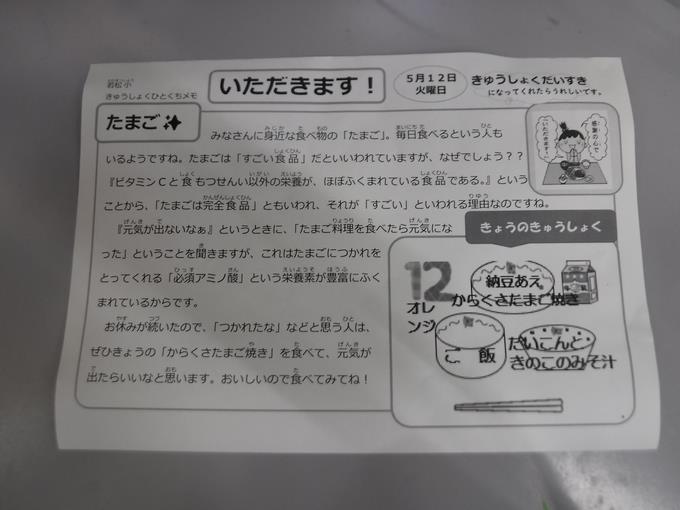 わかまつしょう
若松小
きゅうしょくひとくちメモ
いただきます！
５月１２日
火曜日
きゅうしょくだいすき
になってくれたらうれしいです。
たまご
みなさんに身近な食べ物の「たまご」。毎日食べるという人も
いるようですね。たまごは「すごい食品」だといいわれていますが、なぜでしょう？？
『ビタミンCと食もつせんい以外の栄養が、ほぼふくまれている食品である。』という
ことから、「たまごは完全食品」ともいわれ、それが「すごい」といわれる理由なのですね。
『元気が出ないなぁ』というときに、「たまご料理を食べたら元気にな
った」ということを聞きますが、これはたまごにつかれを
とってくれる「必須アミノ酸」という栄養素が豊富にふく
まれているからです。
お休みが続いたので、「つかれたな」などと思う人は、
ぜひきょうの「からくさたまご焼き」を食べて、元気が
出たらいいなと思います。おいしいので食べてみてね！
感謝の心で
いただきます！
きょうのきゅうしょく
12
オレ
ンジ
納豆あえ
からくさたまご焼き
ご飯
だいこんと
きのこのみそ汁